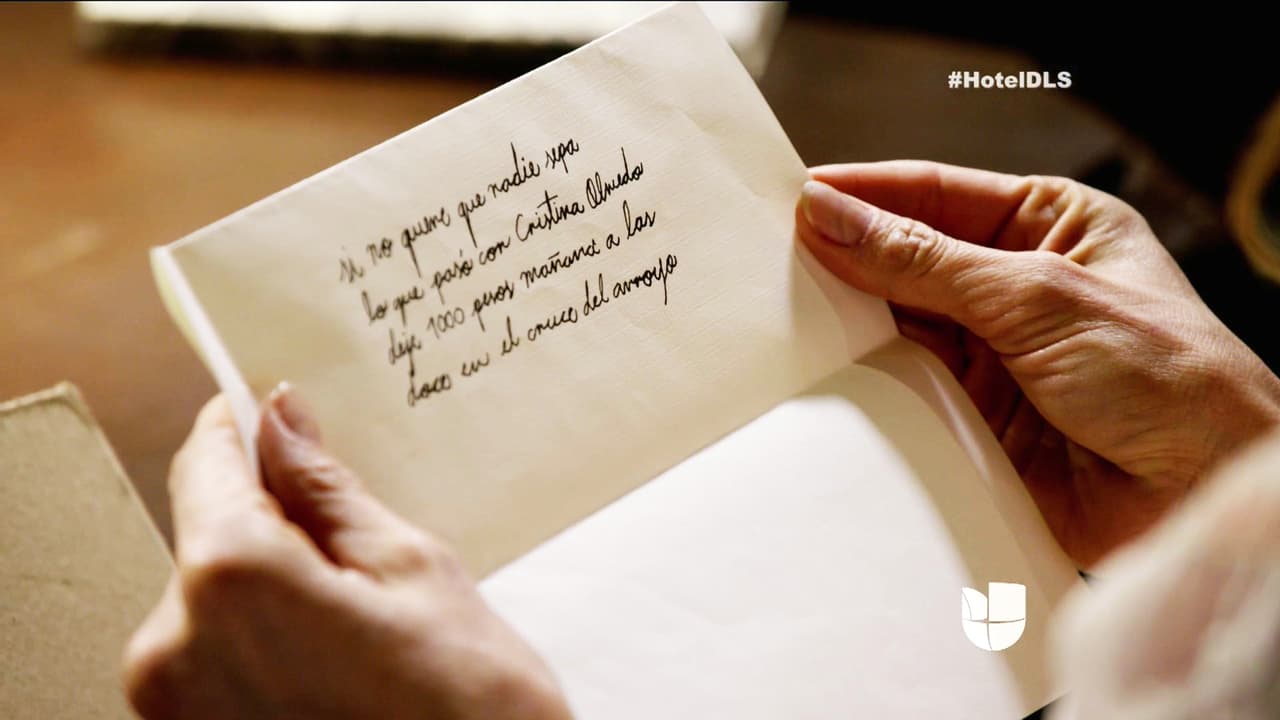 #HotelDLS
si no quiere que nadie sepa
lo que pasó con Cristina Olmedo
deje 1000 pesos mañana a las
doce en el cruce del arroyo